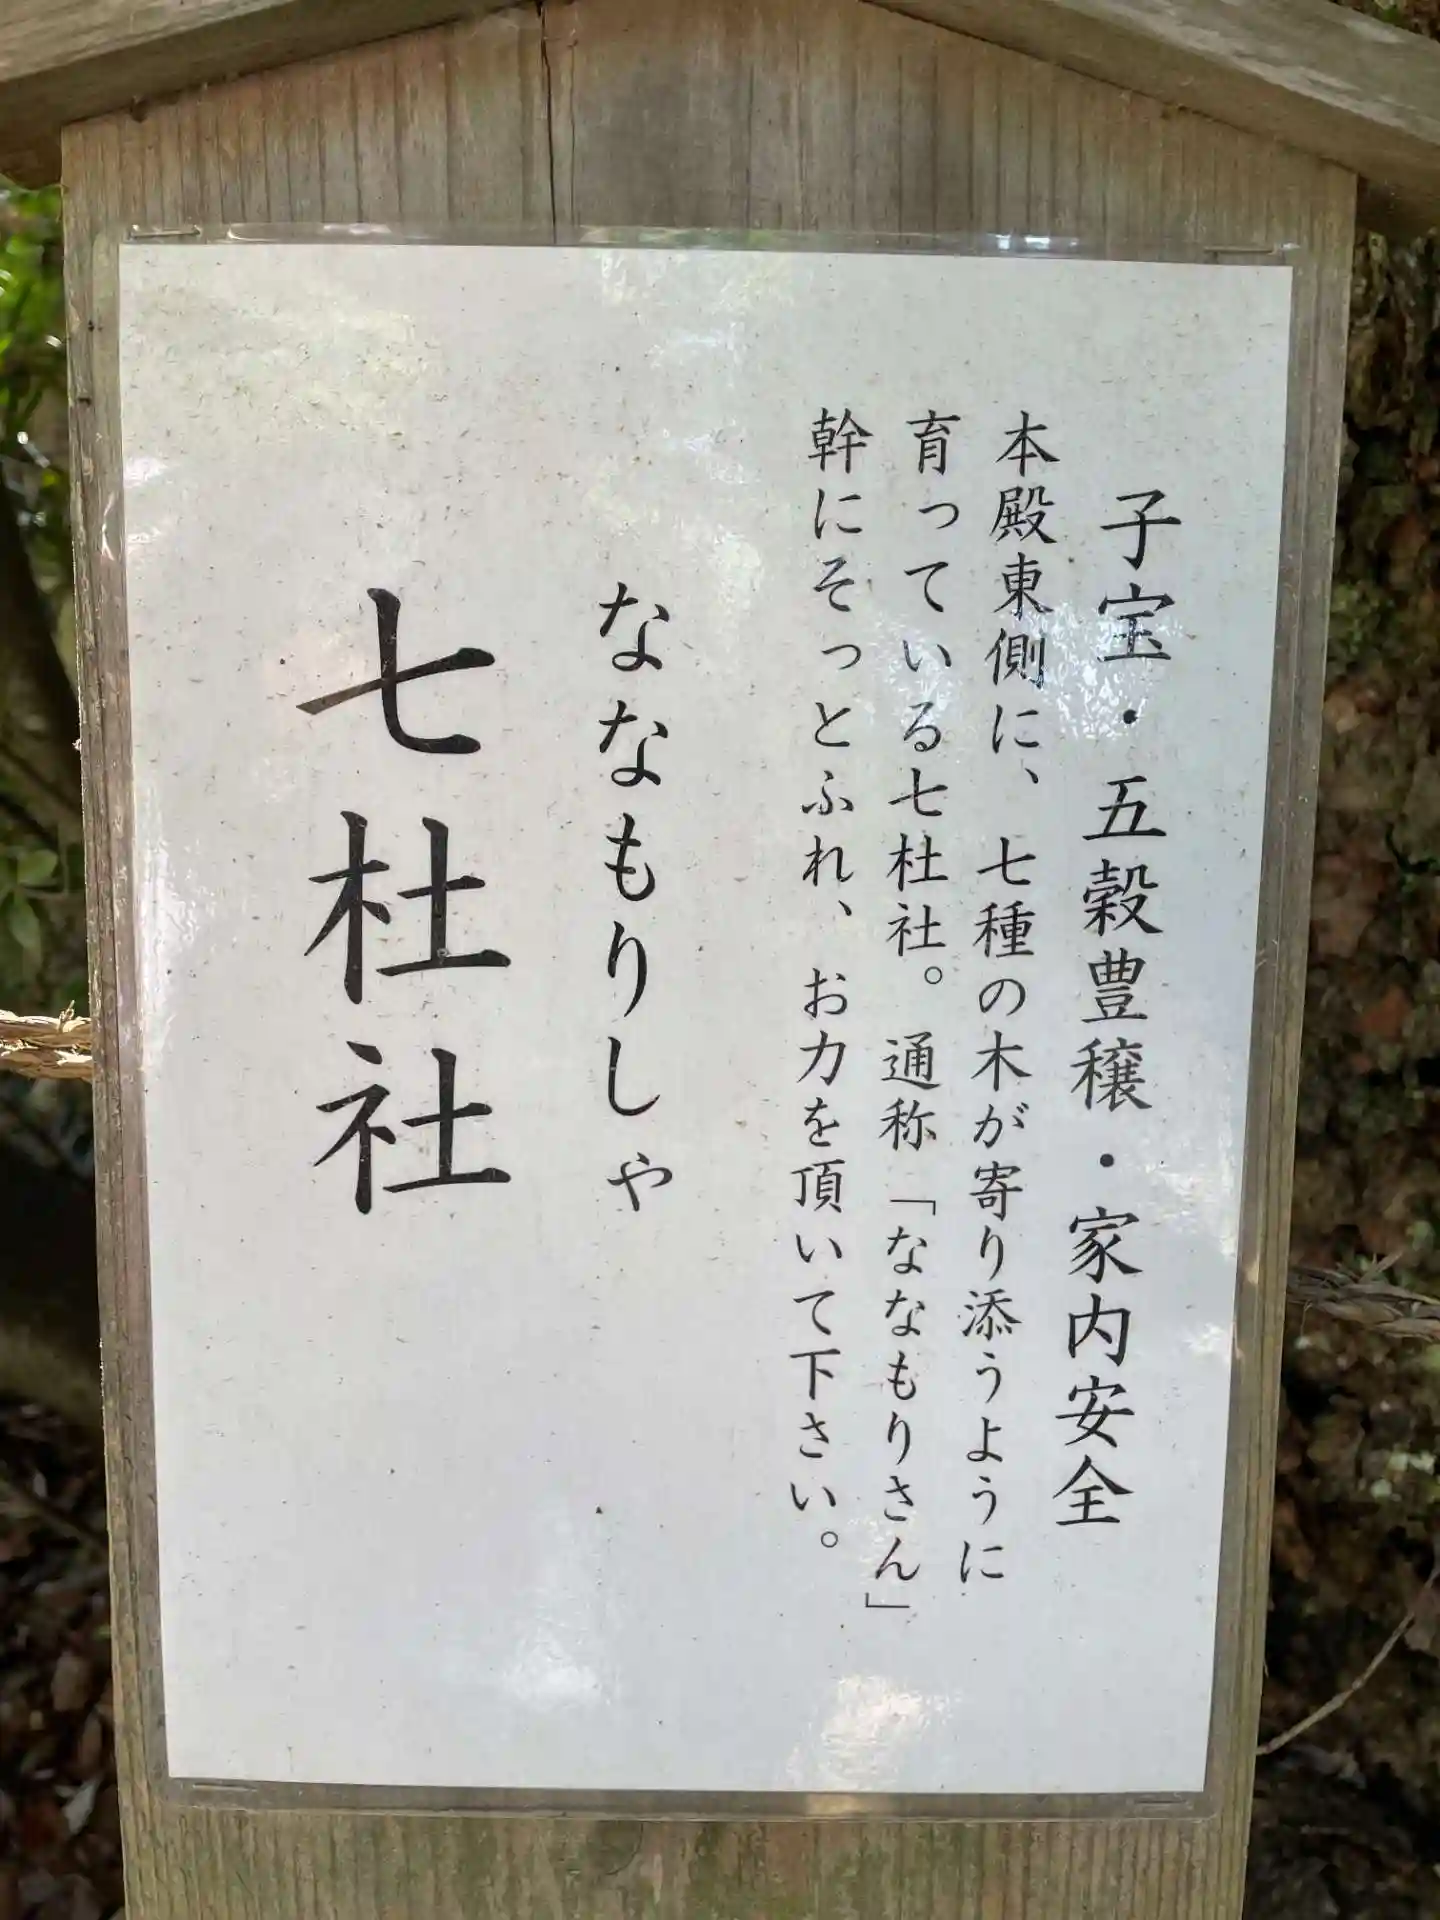 子宝・五穀豊穣・家内安全
本殿東側に、七種の木が寄り添うように
育っている七杜社。通称「ななもりさん」
幹にそっとふれ、お力を頂いて下さい。
ななもりしゃ
七杜社